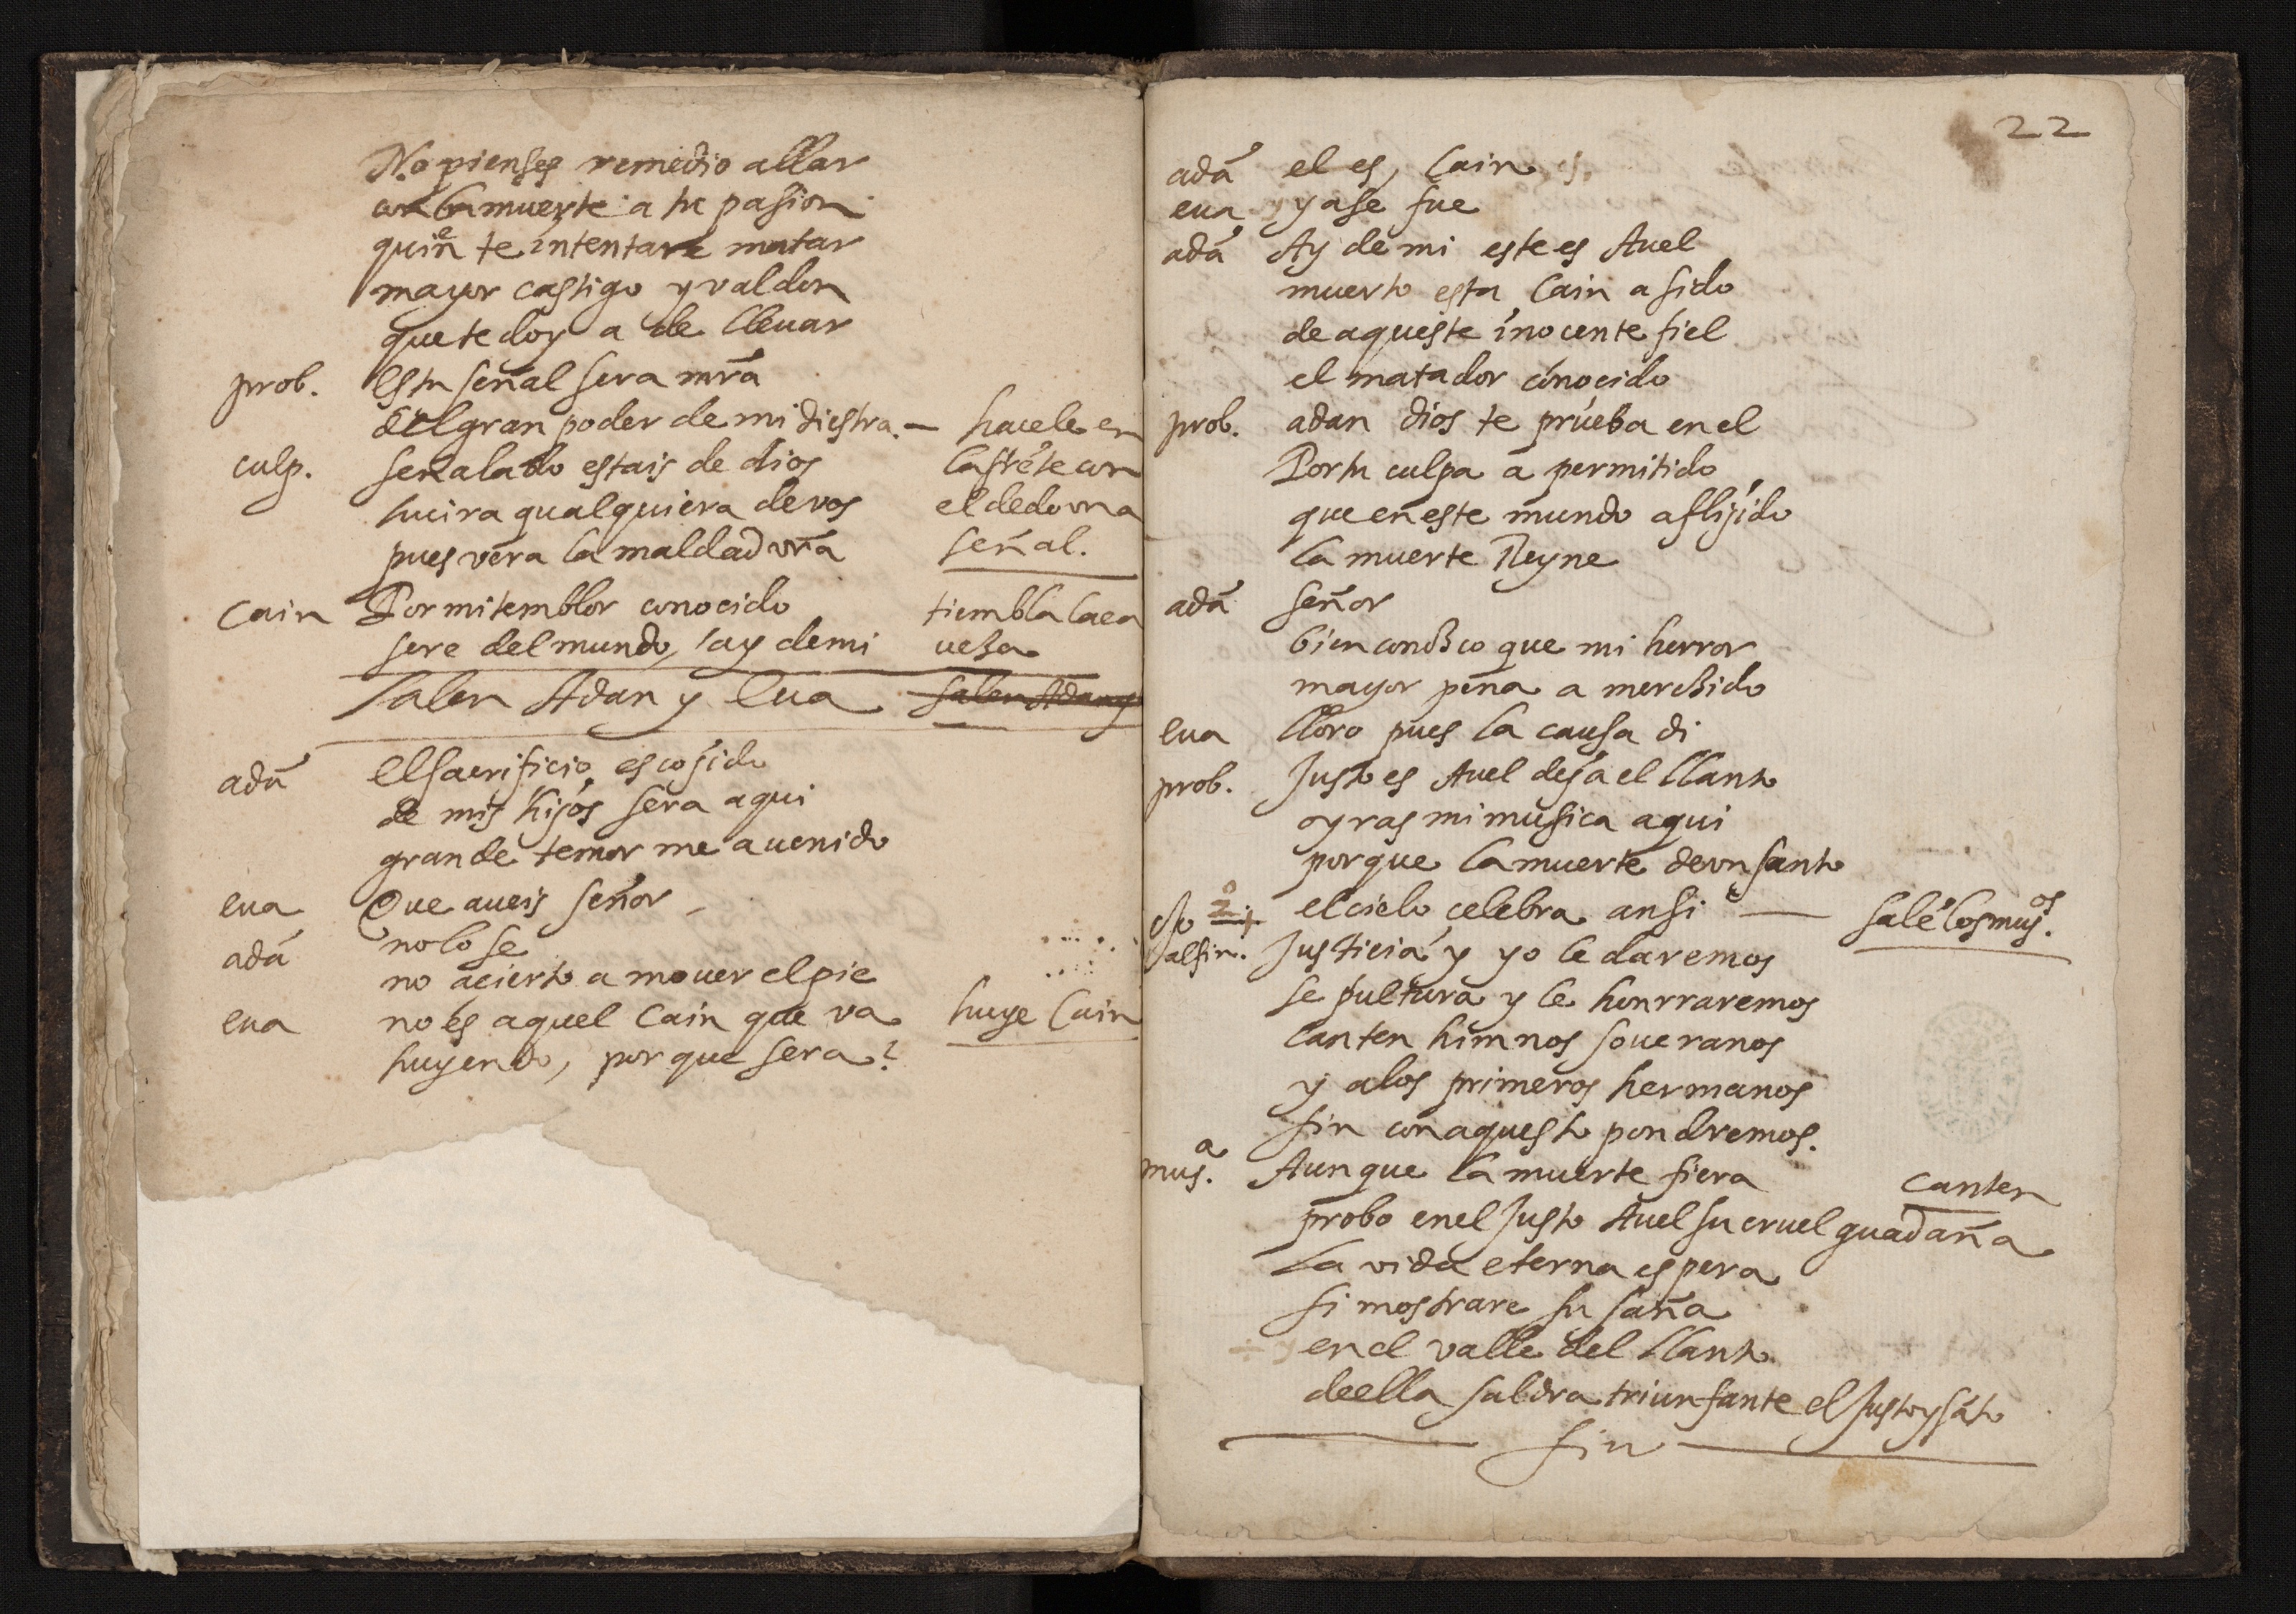 No pienses remedio allar
con la muerte a tu pasion
quien te intentare matar
mayor castigo y valdon
que te doy a de lleuar
prob. esta señal sera mr̃a
del gran poder de mi diestra. — hacele en
culp. señalado estais de dios la frẽte con
huira qualquiera de vos el dedo vna
pues vera la maldad vr̃a señal.
Cain Por mi temblor conocido tiembla la ca
sere del mundo, ay de mi ueza
Salen Adan y Eua salen Adan y
adã el sacrificio escojido
de mis hijos sera aqui
grande temor me a uenido
eua Que aueis señor
adã no lo se
no acierto a mouer el pie
eua no es aquel Cain que va huye Cain
huyendo, por que sera?
22
adã el es, Cain es
eua y ya se fue
adã Ay de mi este es Auel
muerto esta Cain a sido
de aqueste inocente fiel
el matador cõnocido
prob. adan dios te prueba en el
Por tu culpa a permitido
que en este mundo aflijido
la muerte Reyne
adã señor
bien conozco que mi herror
mayor pena a merezido
eua lloro pues la causa di
prob. Justo es Auel deja el llanto
oyras mi musica aqui
porque la muerte de vn santo
2º el cielo celebra ansi — salẽ los mus.os
al fin. Justicia y yo le daremos
sepultura y le honrraremos
canten himnos soueranos
y a los primeros hermanos
fin con aquesto pondremos.
mus.a Aunque la muerte fiera canten
probo en el Justo Auel su cruel guadaña
la vida eterna espera
si mostrare su saña
en el valle del llanto
de ella saldra triunfante el Justo y sãto
fin